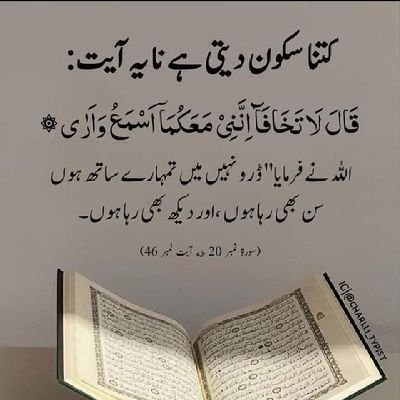 کتنا سکون دیتی ہے نا یہ آیت:
قَالَ لَا تَخَافَآ اِنَّنِیْ مَعَکُمَآ اَسْمَعُ وَاَرٰی ۞
اللہ نے فرمایا "ڈرو نہیں میں تمہارے ساتھ ہوں
سن بھی رہا ہوں ،اور دیکھ بھی رہا ہوں۔
(سورۃ نمبر 20 طہ آیت نمبر 46)
IC|@CHARLI1_TYPIST